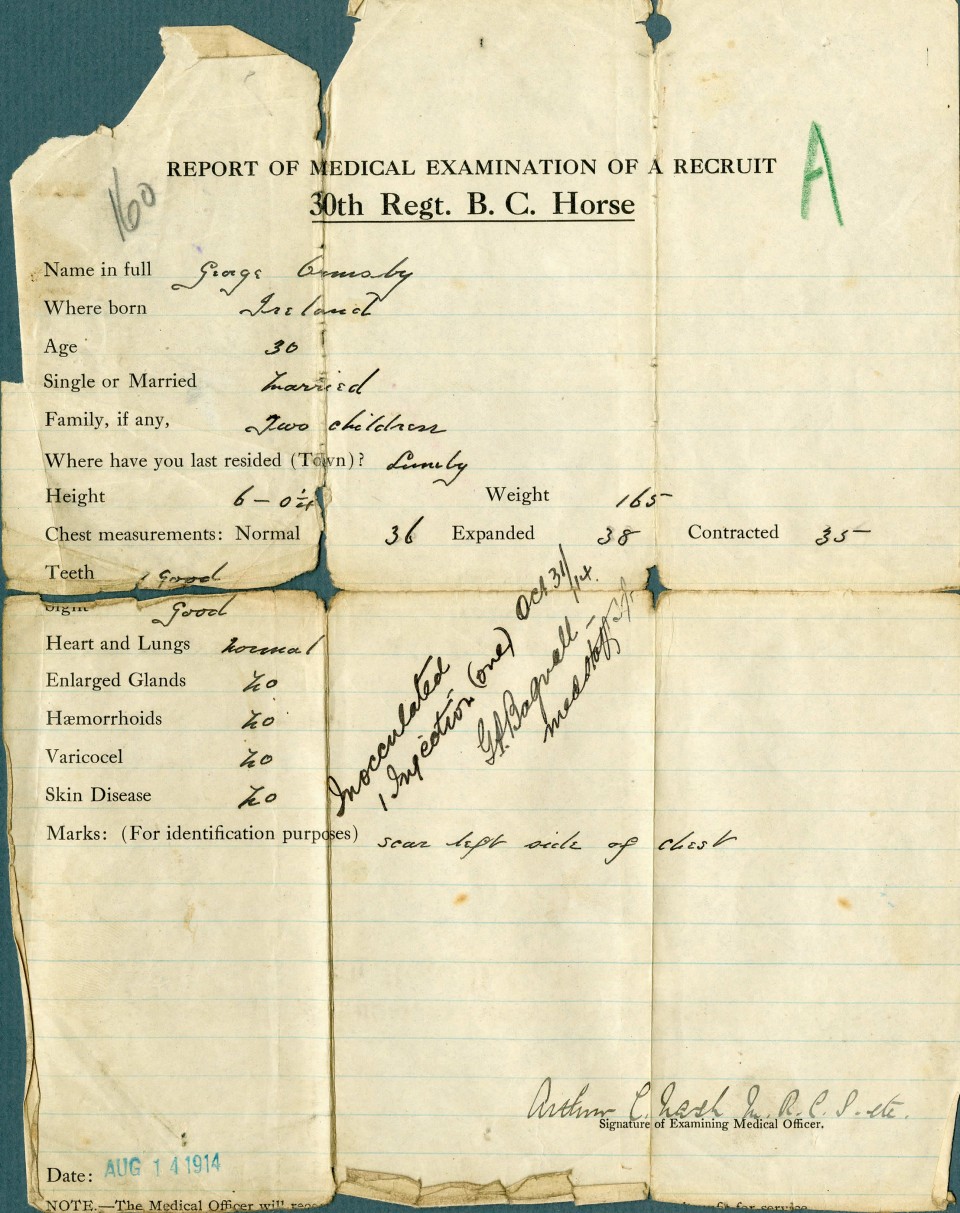 160
A
REPORT OF MEDICAL EXAMINATION OF A RECRUIT
30th Regt. B. C. Horse
Name in full George Ormsby
Where born Ireland
Age 30
Single or Married Married
Family, if any, Two children
Where have you last resided (Town)? Lumby
Height 6 - 0¼ Weight 165
Chest measurements: Normal 36 Expanded 38 Contracted 35
Teeth Good
Sight Good
Heart and Lungs normal
Enlarged Glands No
Hæmorrhoids No
Varicocel No
Skin Disease No
Inocculated
1 Injection (one) Oct 31/14.
Bagnall
Marks: (For identification purposes) scar left side of chest
Arthur C. Nash M. R. C. S. etc.
Signature of Examining Medical Officer.
Date: AUG 14 1914
NOTE.—The Medical Officer will for service